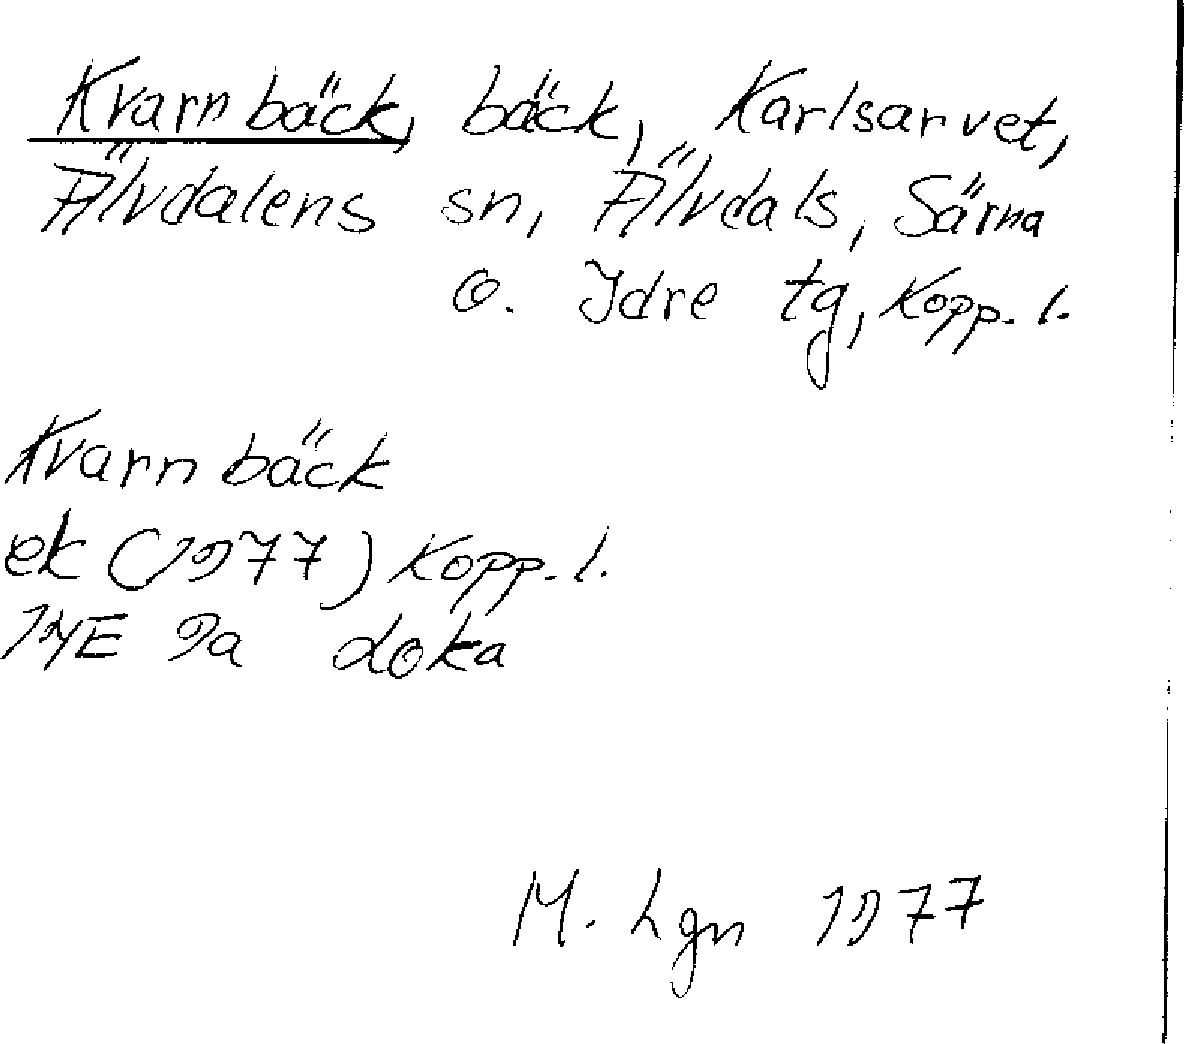 Kvarnbäck, bäck, Karlsarvet,
Älvdalens sn, Älvdals, Särna
o. Idre tg, Kopp. l.
Kvarnbäck
ek (1977) Kopp. l.
14E 9a doka
M. Lgn 1977